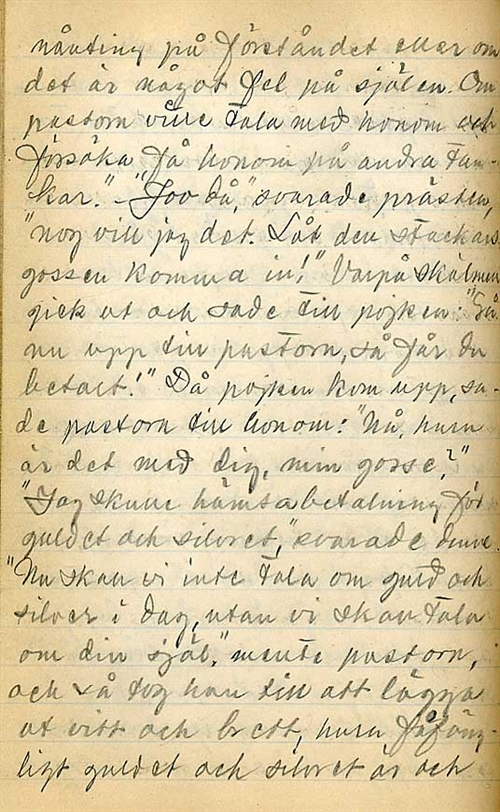 nånting på förståndet eller om
det är något fel på själen. Om
pastorn ville tala med honom och
försöka få honom på andra tan-
kar." - "Joo då," svarade prästen,
"nog vill jag det. Låt den stackars
gossen komma in!" Varpå skälmen
gick ut och sade till pojken: "Gå
nu upp till pastorn, så får du
betalt!" Då pojken kom upp, sa-
de pastorn till honom: "Nå, hurn
är det med dig, min gosse?"
"Jag skulle hämta betalning för
guldet och silvret," svarade denne.
"Nu skall vi inte tala om guld och
silver i dag, utan vi skall tala
om din själ," mente pastorn,
och så tog han till att lägga
ut vitt och brett, huru fåfäng-
ligt guldet och silvret är och